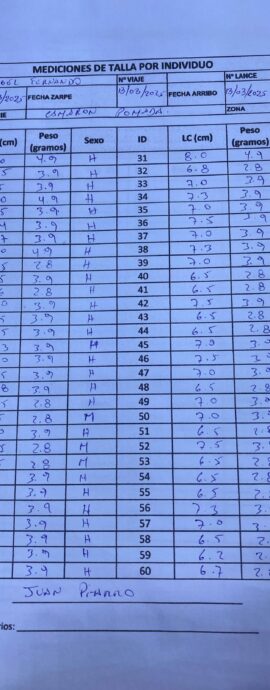 MEDICIONES DE TALLA POR INDIVIDUO
FERNANDO Nº VIAJE Nº LANCE
/03/2025 FECHA ZARPE 13/03/2025 FECHA ARRIBO 13/03/2025
IE CAMARON POMADA ZONA
(cm) Peso (gramos) Sexo ID LC (cm) Peso (gramos)
4.9 H 31 8.0 4.9
5 3.9 H 32 6.8 2.8
3.9 H 33 7.0 3.9
0 4.9 H 34 7.3 3.9
5 3.9 H 35 7.0 3.9
3.9 H 36 7.5 3.9
7 3.9 H 37 7.0 3.9
0 4.9 H 38 7.3 3.9
5 2.8 H 39 7.0 3.9
5 3.9 H 40 6.5 2.8
2.8 H 41 6.5 2.8
0 3.9 H 42 7.5 3.9
5 3.9 H 43 6.5 2.8
5 3.9 H 44 6.5 2.8
3 3.9 M 45 7.0 3.
0 3.9 H 46 7.5 3.
5 3.9 H 47 7.0 3.
8 3.9 H 48 6.5 2
5 2.8 H 49 7.0 3.
5 2.8 M 50 7.0 3.
0 3.9 H 51 6.5 2.
5 2.8 M 52 7.5 3.
5 2.8 M 53 6.5 2
3.9 H 54 6.5 2.
3.9 H 55 6.5 2
3.9 H 56 7.3 3.
3.9 H 57 7.0 3.
3.9 H 58 6.5 2.
3.9 H 59 6.2 2.
3.9 H 60 6.7 2.
JUAN
rios: